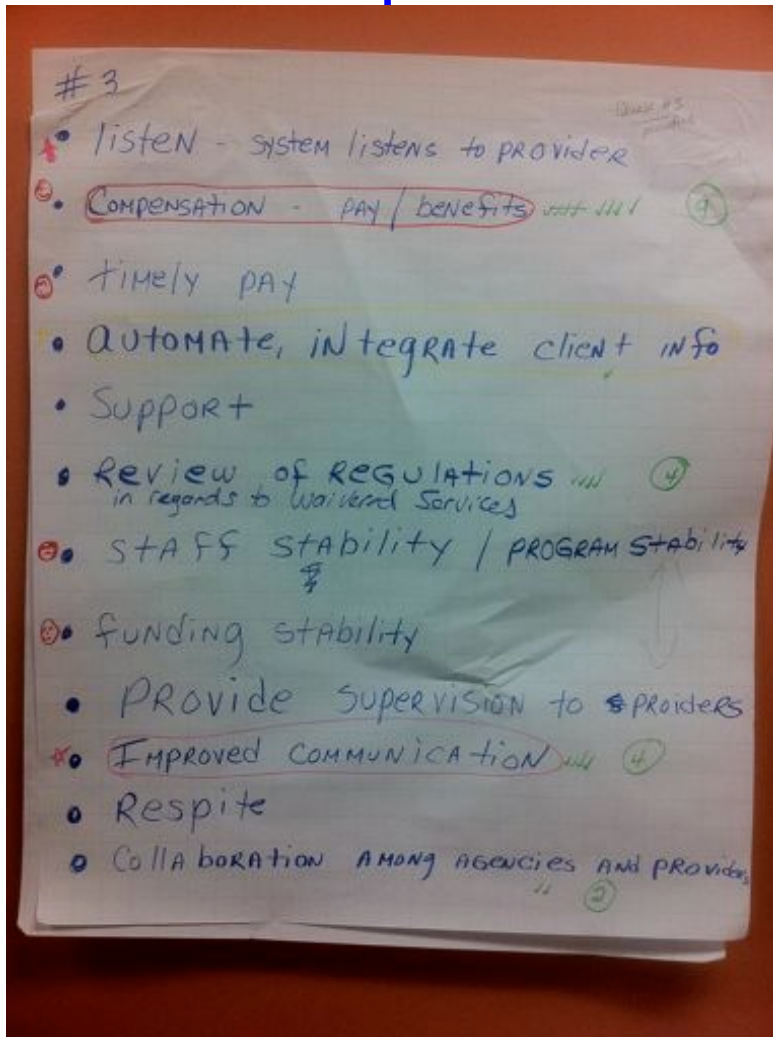 #3
• listen - system listens to provider
• Compensation - pay / benefits 9
• timely pay
• automate, integrate client info
• Support
• Review of Regulations 4
in regards to Waivered Services
• Staff stability / program stability
• funding stability
• Provide supervision to proiders
• Improved communication 4
• Respite
• Collaboration among agencies and providers
2